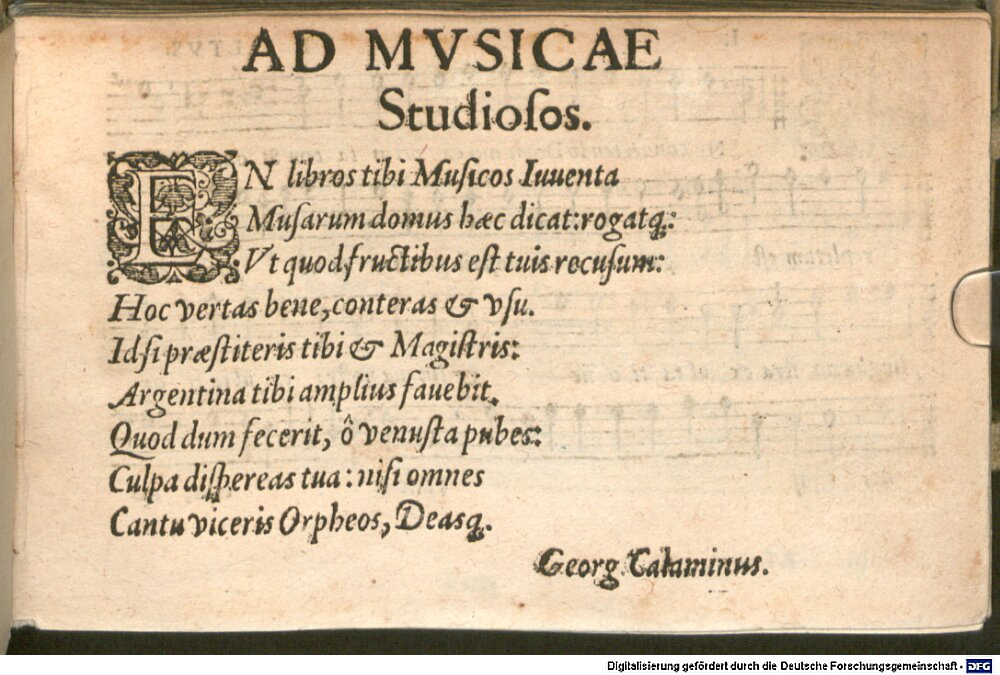 AD MVSICAE
Studioſos.
EN libros tibi Muſicos Iuuenta
Muſarum domus hæc dicat: rogatq́;:
Vt quod fructibus eſt tuis recuſum:
Hoc vertas bene, conteras & vſu.
Id ſi præſtiteris tibi & Magiſtris:
Argentina tibi amplius fauebit.
Quod dum fecerit, ô venuſta pubes:
Culpa diſpereas tua: niſi omnes
Cantu viceris Orpheos, Deasq́;.
Georg. Calaminus.
Digitalisierung gefördert durch die Deutsche Forschungsgemeinschaft - DFG